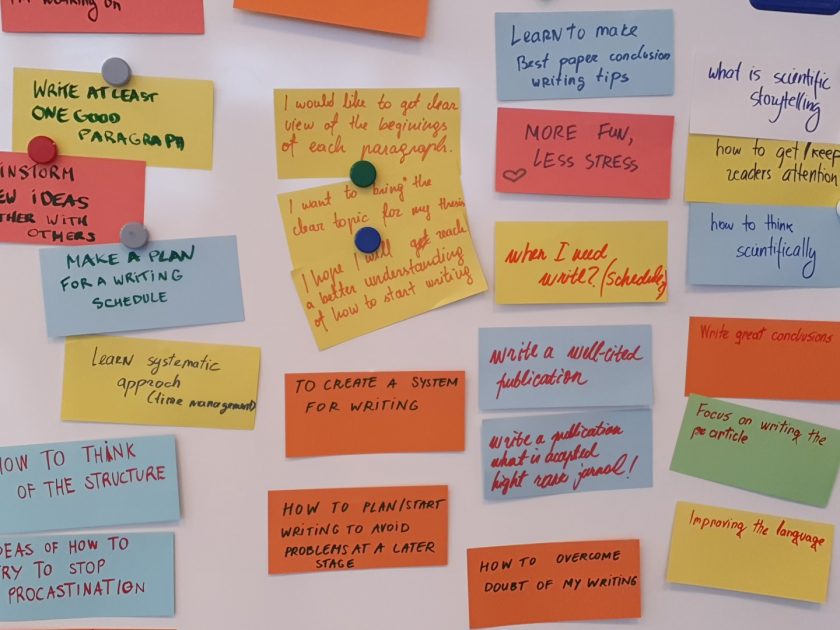 I'm WORKING ON
WRITE AT LEAST
ONE GOOD
PARAGRAPH
INSTORM
EW IDEAS
THER WITH
OTHERS
MAKE A PLAN
FOR A WRITING
SCHEDULE
Learn systematic
approch
(time management)
HOW TO THINK
OF THE STRUCTURE
DEAS OF HOW TO
RY TO STOP
PROCASTINATION
I would like to get clear
view of the beginings
of each paragraph.
I want to "bring" the
clear topic for my thesis
I hope I will get reach
a better understanding
of how to start writing
TO CREATE A SYSTEM
FOR WRITING
HOW TO PLAN/START
WRITING TO AVOID
PROBLEMS AT A LATER
STAGE
LEARN TO make
Best paper conclusion
writing tips
MORE FUN,
LESS STRESS
when I need
write? (schedule)
write a well-cited
publication
write a publication
what is accepted
hight rank jornal!
HOW TO OVERCOME
DOUBT OF MY WRITING
what is scientific
storytelling
how to get/keep
readers attention
how to think
scientifically
Write great conclusions
Focus on writing the
article
Improving the language